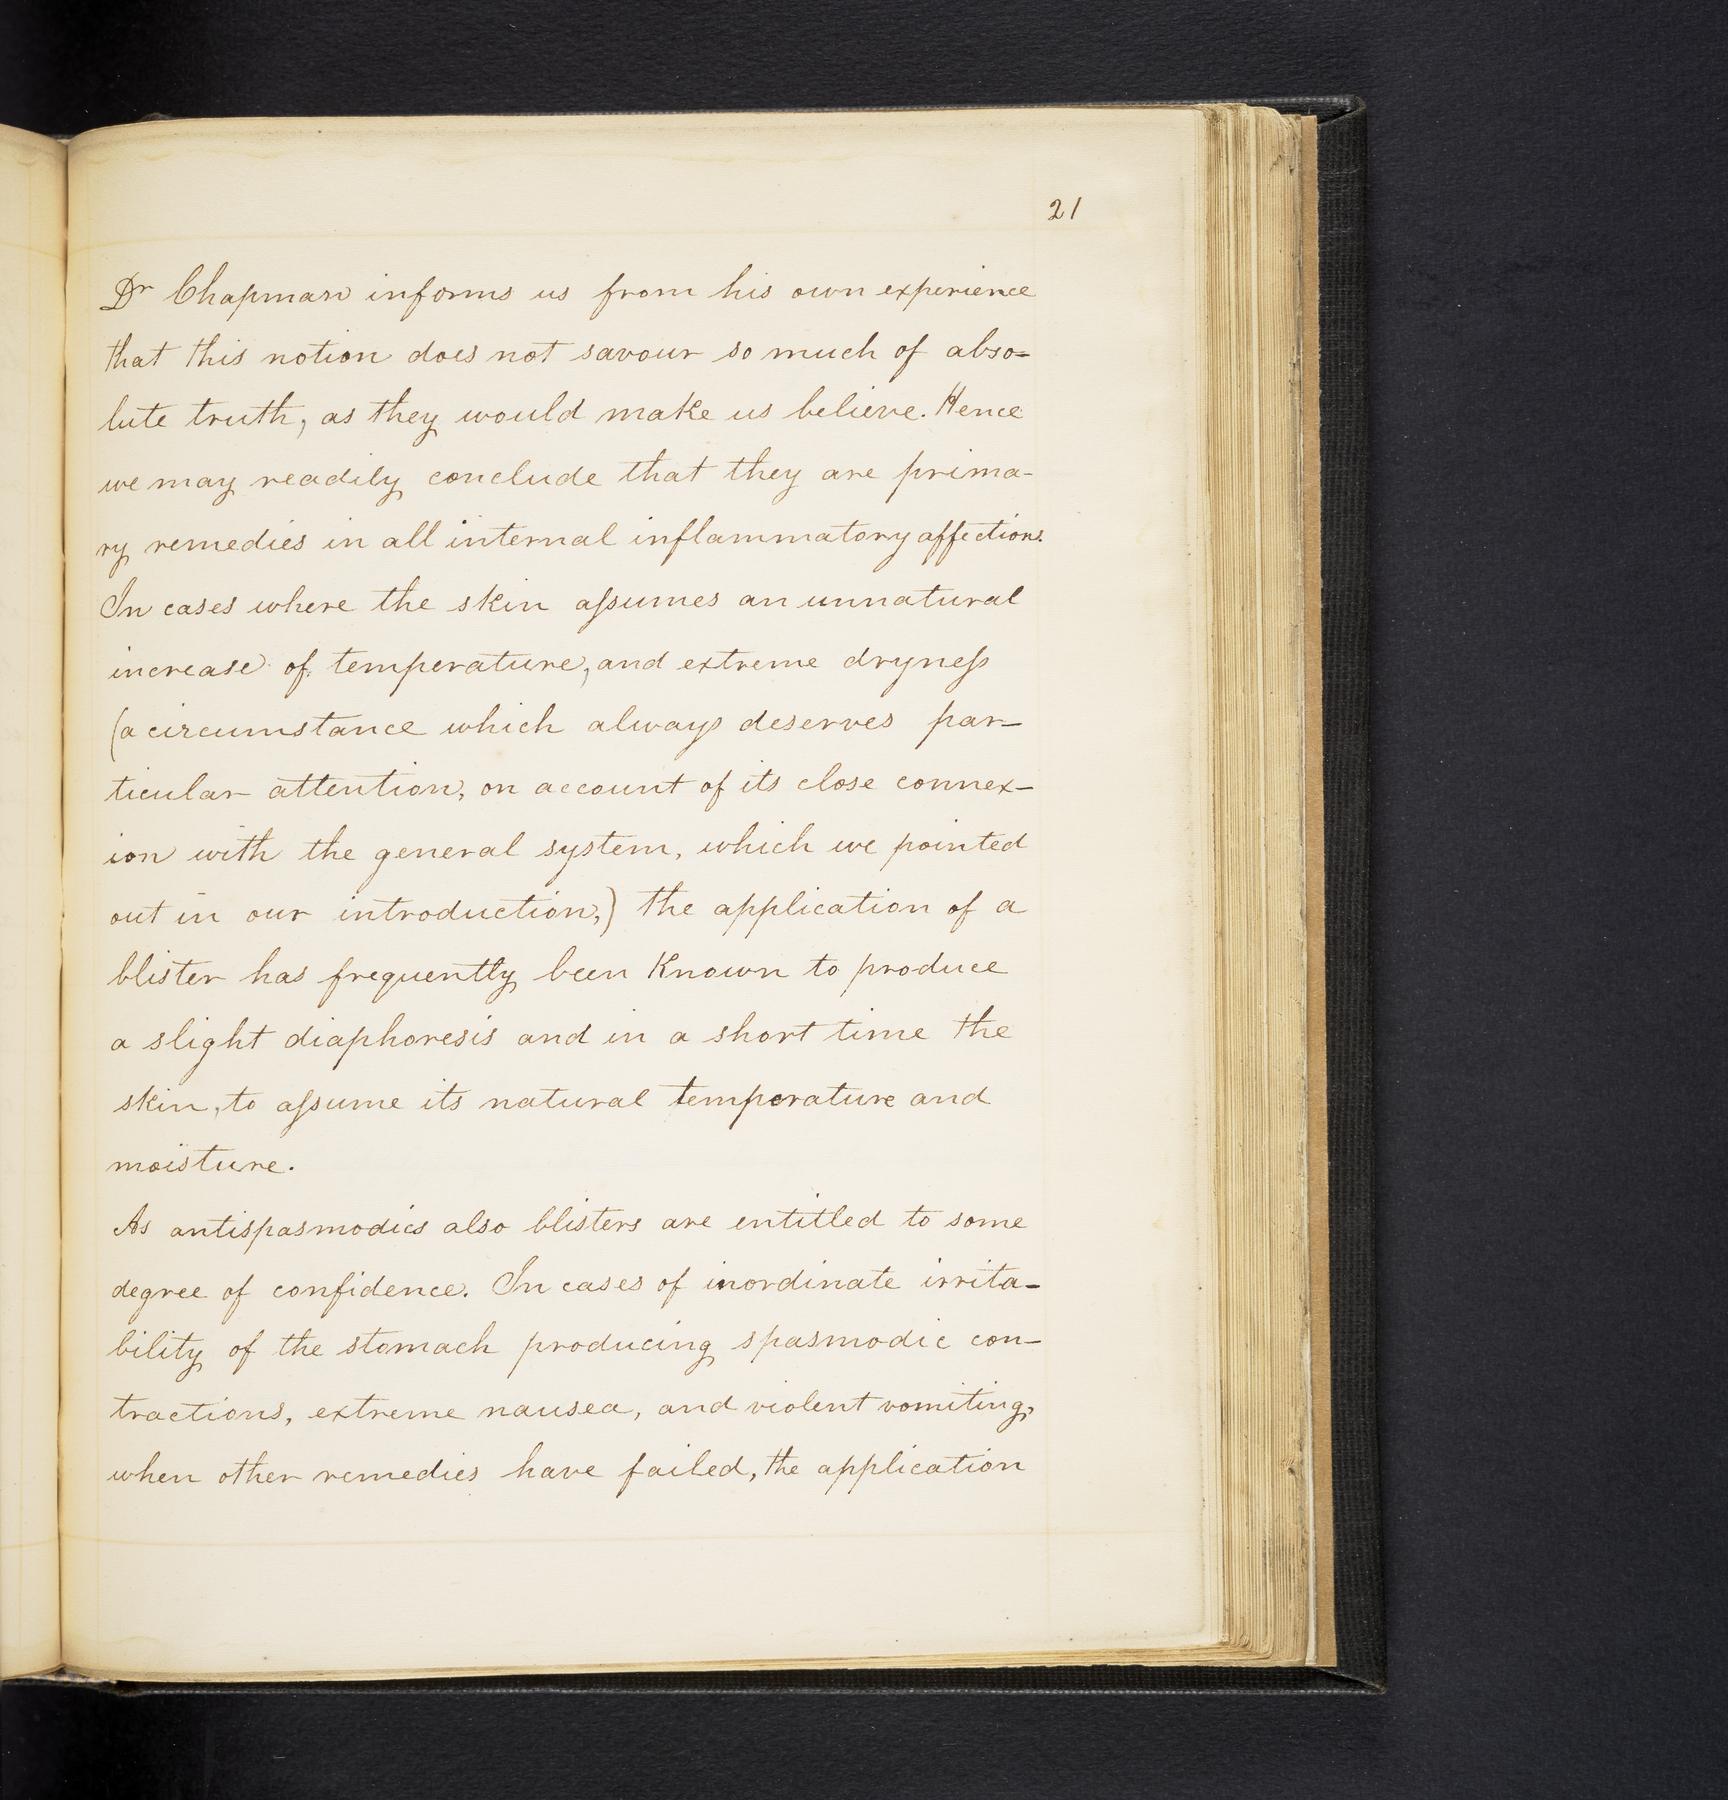 21
Dr Chapman informs us from his own experience
that this notion does not savour so much of abso=
lute truth, as they would make us believe. Hence
we may readily conclude that they are prima-
ry remedies in all internal inflammatory affections.
In cases where the skin aſsumes an unnatural
increase of temperature, and extreme dryneſs
(a circumstance which always deserves par-
ticular attention, on account of its close connex-
ion with the general system, which we pointed
out in our introduction,) the application of a
blister has frequently been Known to produce
a slight diaphoresis and in a short time the
skin, to aſsume its natural temperature and
moisture.
As antispasmodics also blisters are entitled to some
degree of confidence. In cases of inordinate irrita-
bility of the stomach producing spasmodic con-
tractions, extreme nausea, and violent vomiting,
when other remedies have failed, the application